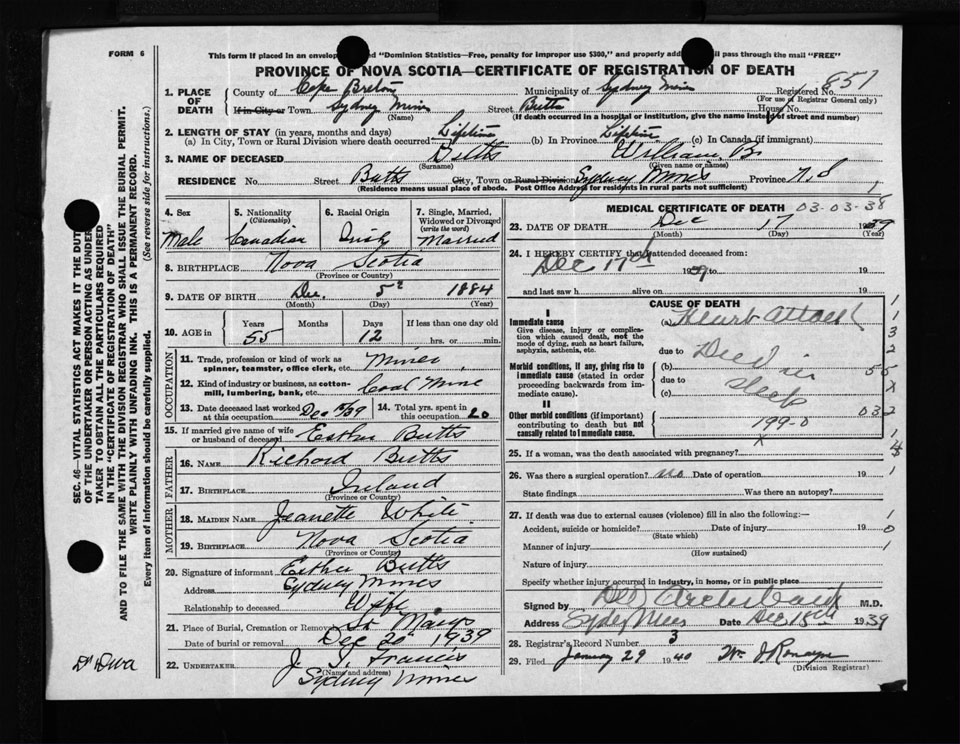 FORM 6
This form if placed in an envelope and "Dominion Statistics—Free, penalty for improper use $300," and properly addressed will pass through the mail "FREE"
PROVINCE OF NOVA SCOTIA—CERTIFICATE OF REGISTRATION OF DEATH
857
1. PLACE OF DEATH County of Cape Breton Municipality of Sydney Mines Registered No.
(For use of Registrar General only)
If in City or Town Sydney Mines Street Butts House No.
(Name) (If death occurred in a hospital or institution, give the name instead of street and number)
2. LENGTH OF STAY (in years, months and days)
(a) In City, Town or Rural Division where death occurred Lifetime (b) In Province Lifetime (c) In Canada (if immigrant)
3. NAME OF DECEASED Butts William B.
(Surname) (Given name or names)
RESIDENCE No. Street Butts City, Town or Rural Division Sydney Mines Province N.S
(Residence means usual place of abode. Post Office Address for residents in rural parts not sufficient)
4. Sex Male
5. Nationality (Citizenship) Canadian
6. Racial Origin Irish
7. Single, Married, Widowed or Divorced (write the word) Married
8. BIRTHPLACE Nova Scotia
(Province or Country)
9. DATE OF BIRTH Dec. 5 1884
(Month) (Day) (Year)
10. AGE in Years 55 Months Days 12 If less than one day old hrs. or min.
OCCUPATION
11. Trade, profession or kind of work as spinner, teamster, office clerk, etc. Miner
12. Kind of industry or business, as cotton-mill, lumbering, bank, etc. Coal Mine
13. Date deceased last worked at this occupation Dec /39
14. Total yrs. spent in this occupation 20
15. If married give name of wife or husband of deceased Esther Butts
FATHER
16. NAME Richard Butts
17. BIRTHPLACE Ireland
(Province or Country)
MOTHER
18. MAIDEN NAME Jeanette White
19. BIRTHPLACE Nova Scotia
(Province or Country)
20. Signature of informant Esther Butts
Address Sydney Mines
Relationship to deceased Wife
21. Place of Burial, Cremation or Removal St Marys
Date of burial or removal Dec 20 1939
22. UNDERTAKER J. Francis
(Name and address)
Sydney Mines
MEDICAL CERTIFICATE OF DEATH 03-03-38
23. DATE OF DEATH Dec 17 1939
(Month) (Day) (Year)
24. I HEREBY CERTIFY that I attended deceased from:
Dec 17th 1939 to 19
and last saw h alive on 19
CAUSE OF DEATH
I
Immediate cause (a) Heart attack
Give disease, injury or complication which caused death, not the mode of dying, such as heart failure, asphyxia, asthenia, etc.
due to Died in
Morbid conditions, if any, giving rise to immediate cause (stated in order proceeding backwards from immediate cause). (b)
due to sleep
(c)
II
Other morbid conditions (if important) contributing to death but not causally related to immediate cause. 199-0
25. If a woman, was the death associated with pregnancy?
26. Was there a surgical operation? no Date of operation 19
State findings Was there an autopsy?
27. If death was due to external causes (violence) fill in also the following:—
Accident, suicide or homicide? Date of injury 19
(State which)
Manner of injury
(How sustained)
Nature of injury
Specify whether injury occurred in industry, in home, or in public place
Signed by Archibald M.D.
Address Sydney Mines Date Dec 18th 1939
28. Registrar's Record Number 3
29. Filed January 29 1940 Wm J. Ronayne
(Division Registrar)
SEC. 46—VITAL STATISTICS ACT MAKES IT THE DUTY OF THE UNDERTAKER OR PERSON ACTING AS UNDERTAKER TO OBTAIN ALL THE PARTICULARS REQUIRED IN THE "CERTIFICATE OF REGISTRATION OF DEATH" AND TO FILE THE SAME WITH THE DIVISION REGISTRAR WHO SHALL ISSUE THE BURIAL PERMIT.
WRITE PLAINLY WITH UNFADING INK. THIS IS A PERMANENT RECORD.
Every item of information should be carefully supplied. (See reverse side for instructions.)